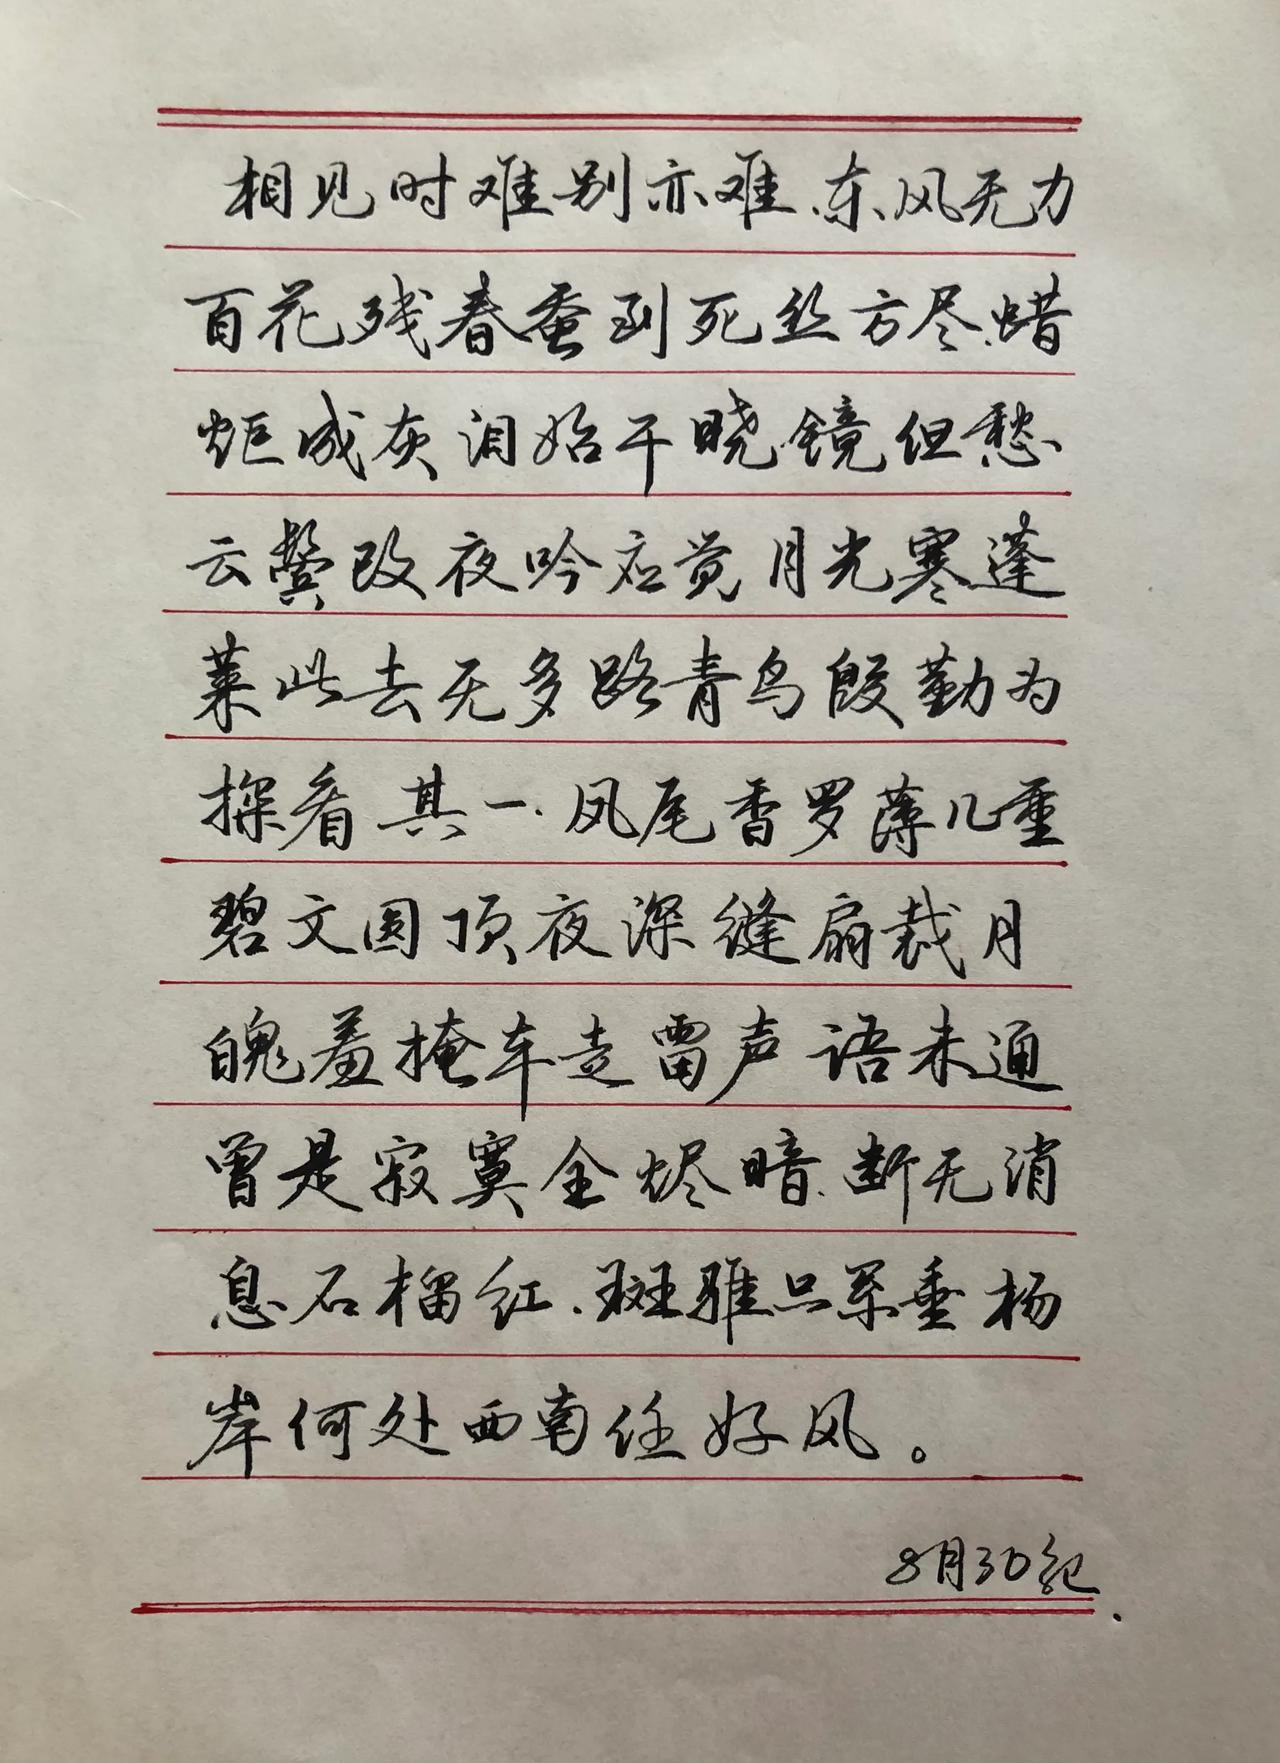 相见时难别亦难、东风无力
百花残春蚕到死丝方尽、蜡
炬成灰泪始干晓镜但愁
云鬓改夜吟应觉月光寒蓬
莱此去无多路青鸟殷勤为
探看其一.凤尾香罗薄几重
碧文圆顶夜深缝扇裁月
魄羞掩车走雷声语未通
曾是寂寞金烬暗、断无消
息石榴红.斑骓只系垂杨
岸何处西南任好风。
8月30纪.